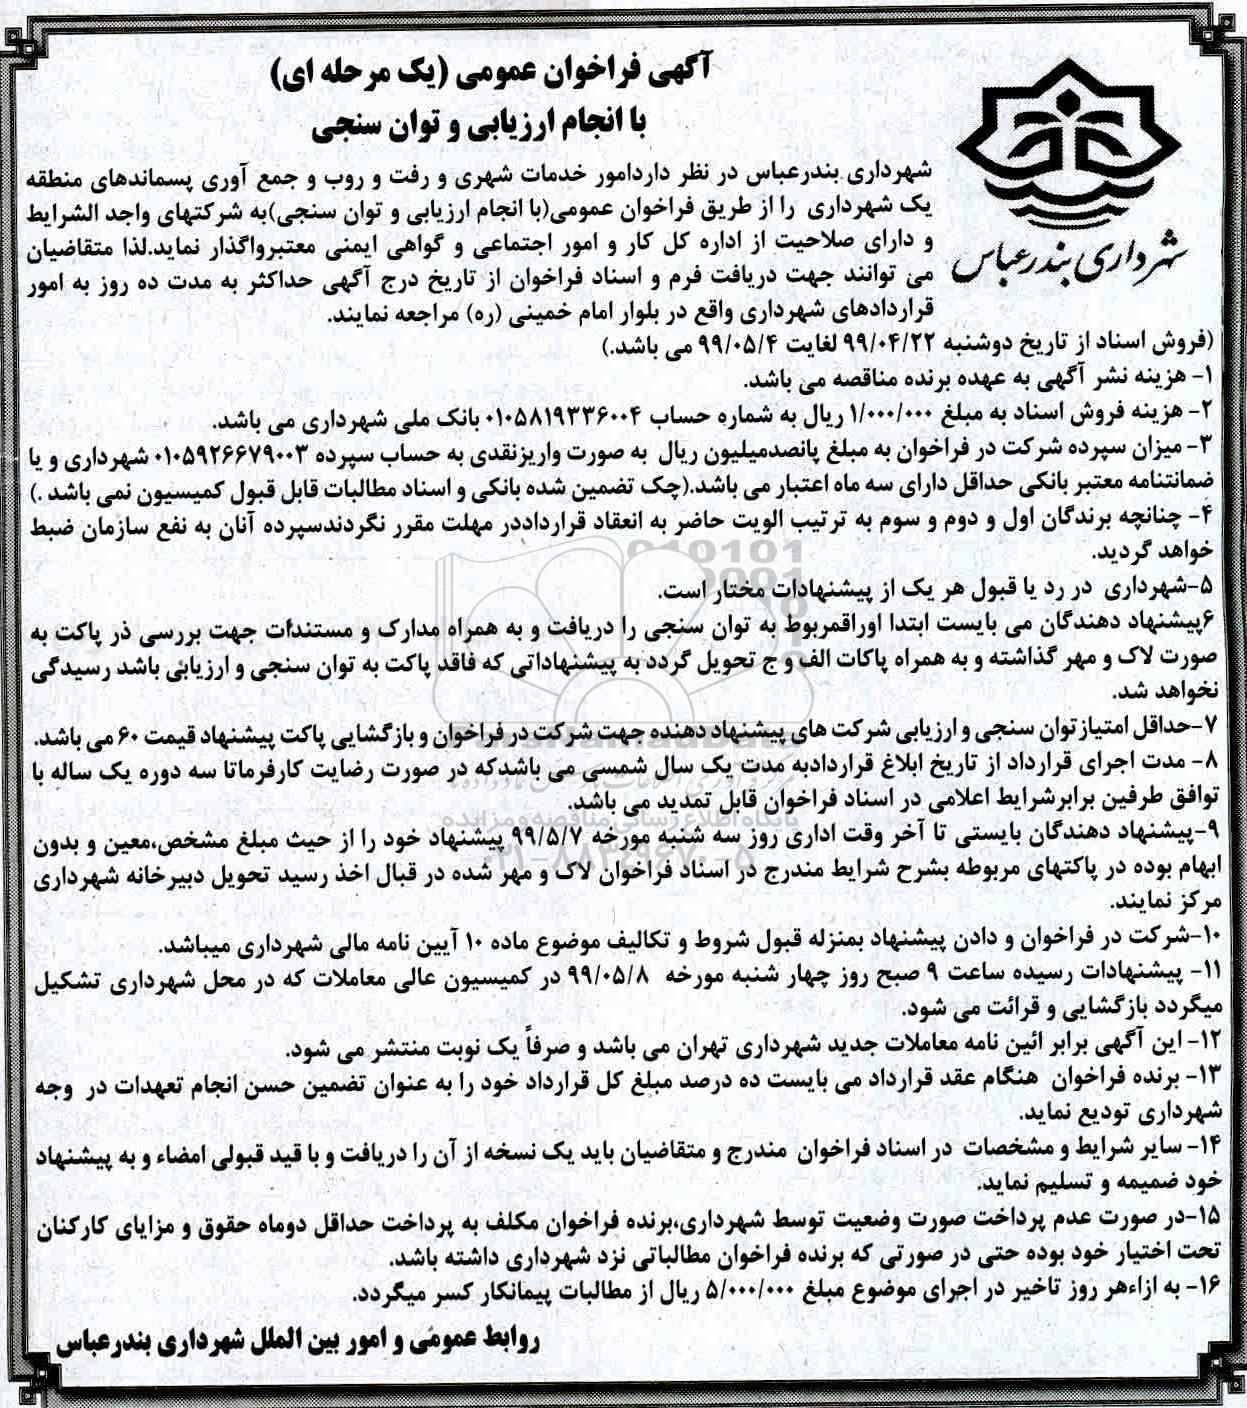 آگهی فراخوان عمومی (یک مرحله ای)
با انجام ارزیابی و توان سنجی
شهرداری بندرعباس
شهرداری بندرعباس در نظر داردامور خدمات شهری و رفت و روب و جمع آوری پسماندهای منطقه
یک شهرداری را از طریق فراخوان عمومی(با انجام ارزیابی و توان سنجی)به شرکتهای واجد الشرایط
و دارای صلاحیت از اداره کل کار و امور اجتماعی و گواهی ایمنی معتبرواگذار نماید.لذا متقاضیان
می توانند جهت دریافت فرم و اسناد فراخوان از تاریخ درج آگهی حداکثر به مدت ده روز به امور
قراردادهای شهرداری واقع در بلوار امام خمینی (ره) مراجعه نمایند.
(فروش اسناد از تاریخ دوشنبه ۹۹/۰۴/۲۲ لغایت ۹۹/۰۵/۴ می باشد.)
۱- هزینه نشر آگهی به عهده برنده مناقصه می باشد.
۲- هزینه فروش اسناد به مبلغ ۱/۰۰۰/۰۰۰ ریال به شماره حساب ۰۱۰۵۸۱۹۳۳۶۰۰۴ بانک ملی شهرداری می باشد.
۳- میزان سپرده شرکت در فراخوان به مبلغ پانصدمیلیون ریال به صورت واریزنقدی به حساب سپرده ۰۱۰۵۹۲۶۶۷۹۰۰۳ شهرداری و یا
ضمانتنامه معتبر بانکی حداقل دارای سه ماه اعتبار می باشد.(چک تضمین شده بانکی و اسناد مطالبات قابل قبول کمیسیون نمی باشد .)
۴- چنانچه برندگان اول و دوم و سوم به ترتیب الویت حاضر به انعقاد قرارداددر مهلت مقرر نگردندسپرده آنان به نفع سازمان ضبط
خواهد گردید.
۵-شهرداری در رد یا قبول هر یک از پیشنهادات مختار است.
۶پیشنهاد دهندگان می بایست ابتدا اوراقمربوط به توان سنجی را دریافت و به همراه مدارک و مستندات جهت بررسی در پاکت به
صورت لاک و مهر گذاشته و به همراه پاکات الف و ج تحویل گردد به پیشنهاداتی که فاقد پاکت به توان سنجی و ارزیابی باشد رسیدگی
نخواهد شد.
۷-حداقل امتیازتوان سنجی و ارزیابی شرکت های پیشنهاد دهنده جهت شرکت در فراخوان و بازگشایی پاکت پیشنهاد قیمت ۶۰ می باشد.
۸- مدت اجرای قرارداد از تاریخ ابلاغ قراردادبه مدت یک سال شمسی می باشدکه در صورت رضایت کارفرماتا سه دوره یک ساله با
توافق طرفین برابرشرایط اعلامی در اسناد فراخوان قابل تمدید می باشد.
۹-پیشنهاد دهندگان بایستی تا آخر وقت اداری روز سه شنبه مورخه ۹۹/۵/۷ پیشنهاد خود را از حیث مبلغ مشخص،معین و بدون
ابهام بوده در پاکتهای مربوطه بشرح شرایط مندرج در اسناد فراخوان لاک و مهر شده در قبال اخذ رسید تحویل دبیرخانه شهرداری
مرکز نمایند.
۱۰-شرکت در فراخوان و دادن پیشنهاد بمنزله قبول شروط و تکالیف موضوع ماده ۱۰ آیین نامه مالی شهرداری میباشد.
۱۱- پیشنهادات رسیده ساعت ۹ صبح روز چهار شنبه مورخه ۹۹/۰۵/۸ در کمیسیون عالی معاملات که در محل شهرداری تشکیل
میگردد بازگشایی و قرائت می شود.
۱۲- این آگهی برابر ائین نامه معاملات جدید شهرداری تهران می باشد و صرفاً یک نوبت منتشر می شود.
۱۳- برنده فراخوان هنگام عقد قرارداد می بایست ده درصد مبلغ کل قرارداد خود را به عنوان تضمین حسن انجام تعهدات در وجه
شهرداری تودیع نماید.
۱۴- سایر شرایط و مشخصات در اسناد فراخوان مندرج و متقاضیان باید یک نسخه از آن را دریافت و با قید قبولی امضاء و به پیشنهاد
خود ضمیمه و تسلیم نماید.
۱۵-در صورت عدم پرداخت صورت وضعیت توسط شهرداری،برنده فراخوان مکلف به پرداخت حداقل دوماه حقوق و مزایای کارکنان
تحت اختیار خود بوده حتی در صورتی که برنده فراخوان مطالباتی نزد شهرداری داشته باشد.
۱۶- به ازاءهر روز تاخیر در اجرای موضوع مبلغ ۵/۰۰۰/۰۰۰ ریال از مطالبات پیمانکار کسر میگردد.
روابط عمومی و امور بین الملل شهرداری بندرعباس